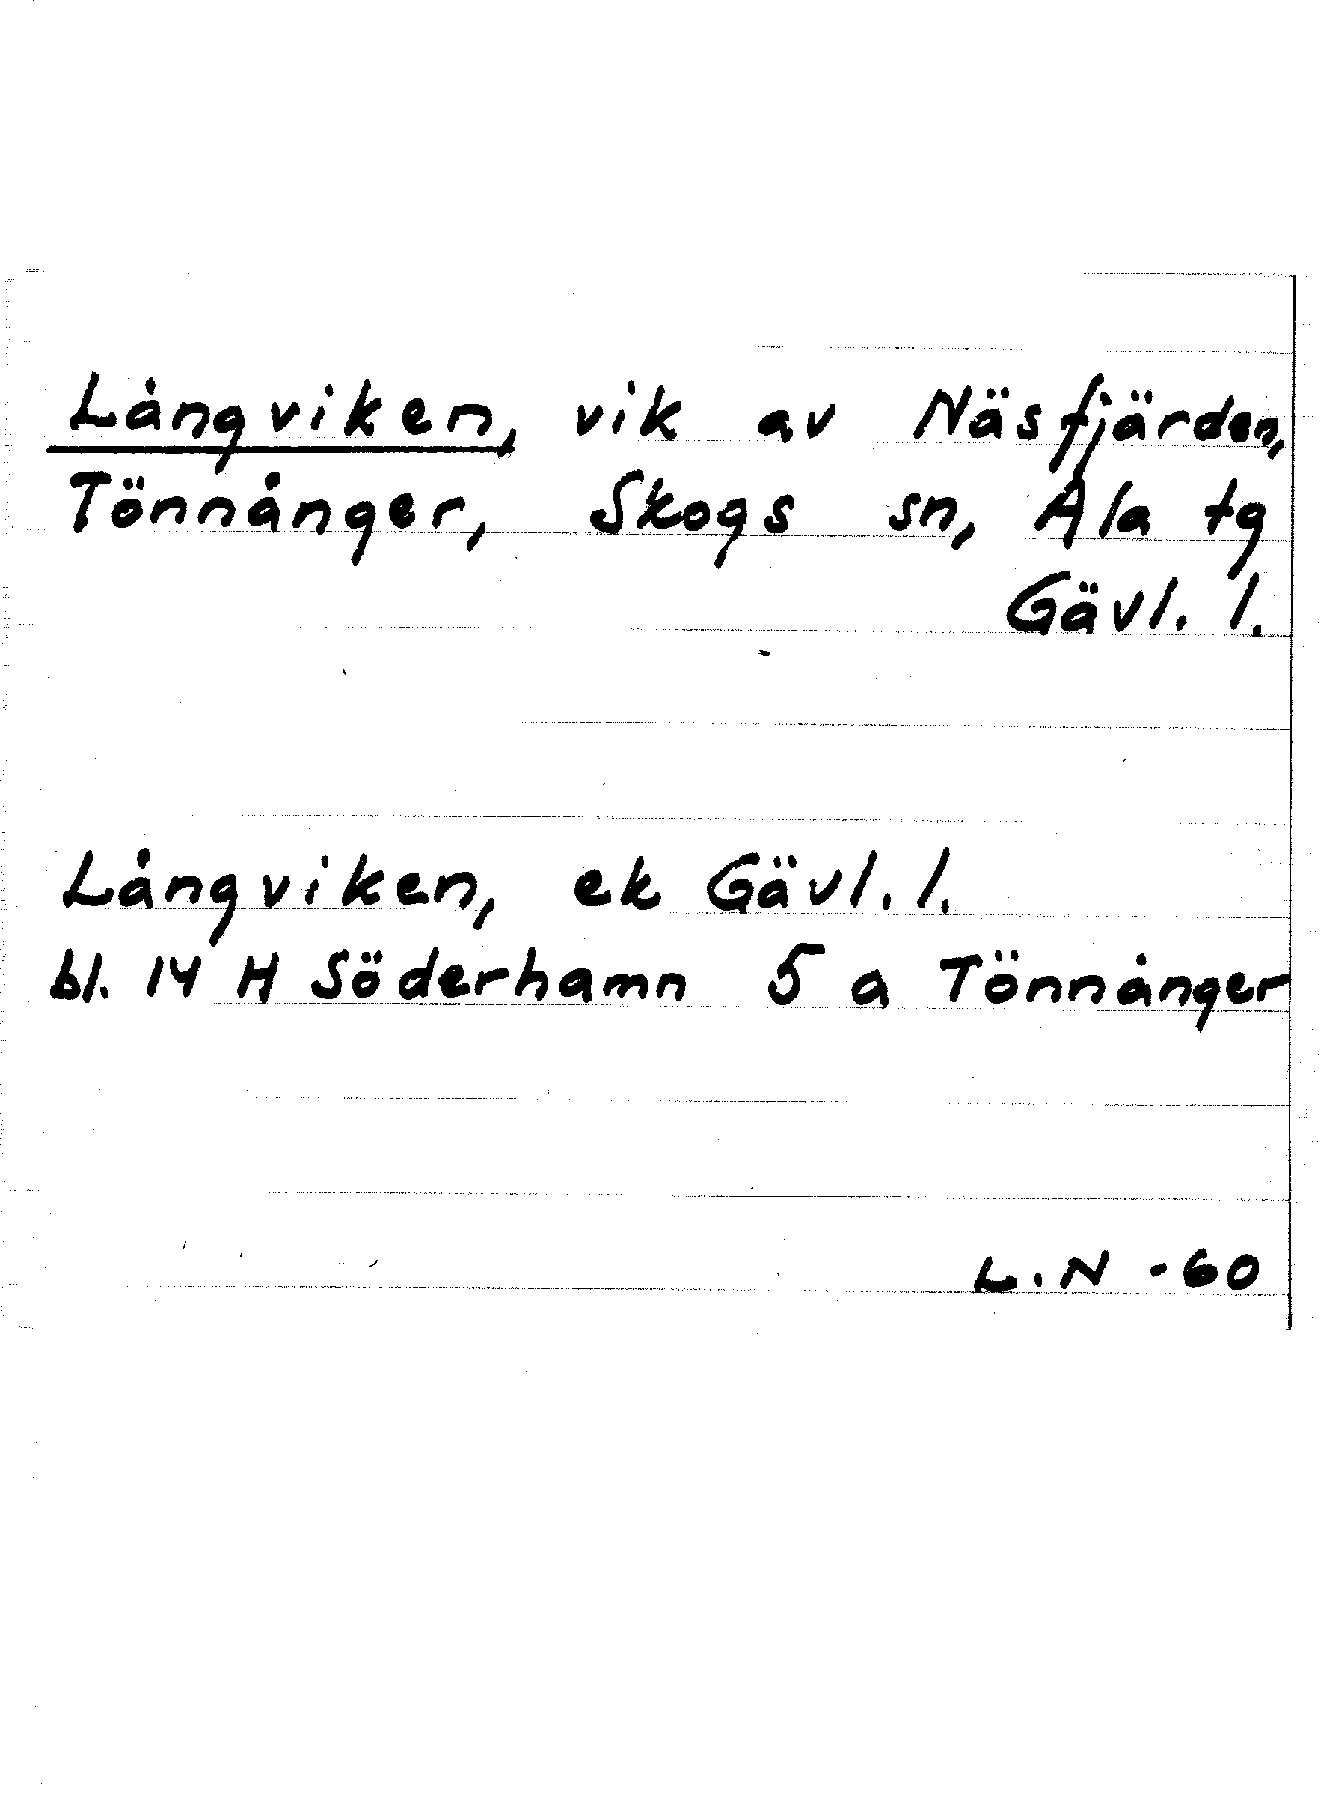 Långviken, vik av Näsfjärden,
Tönnånger, Skogs sn, Ala tg
Gävl. l.
Långviken, ek Gävl. l.
bl. 14 H Söderhamn 5 a Tönnånger
L.N -60